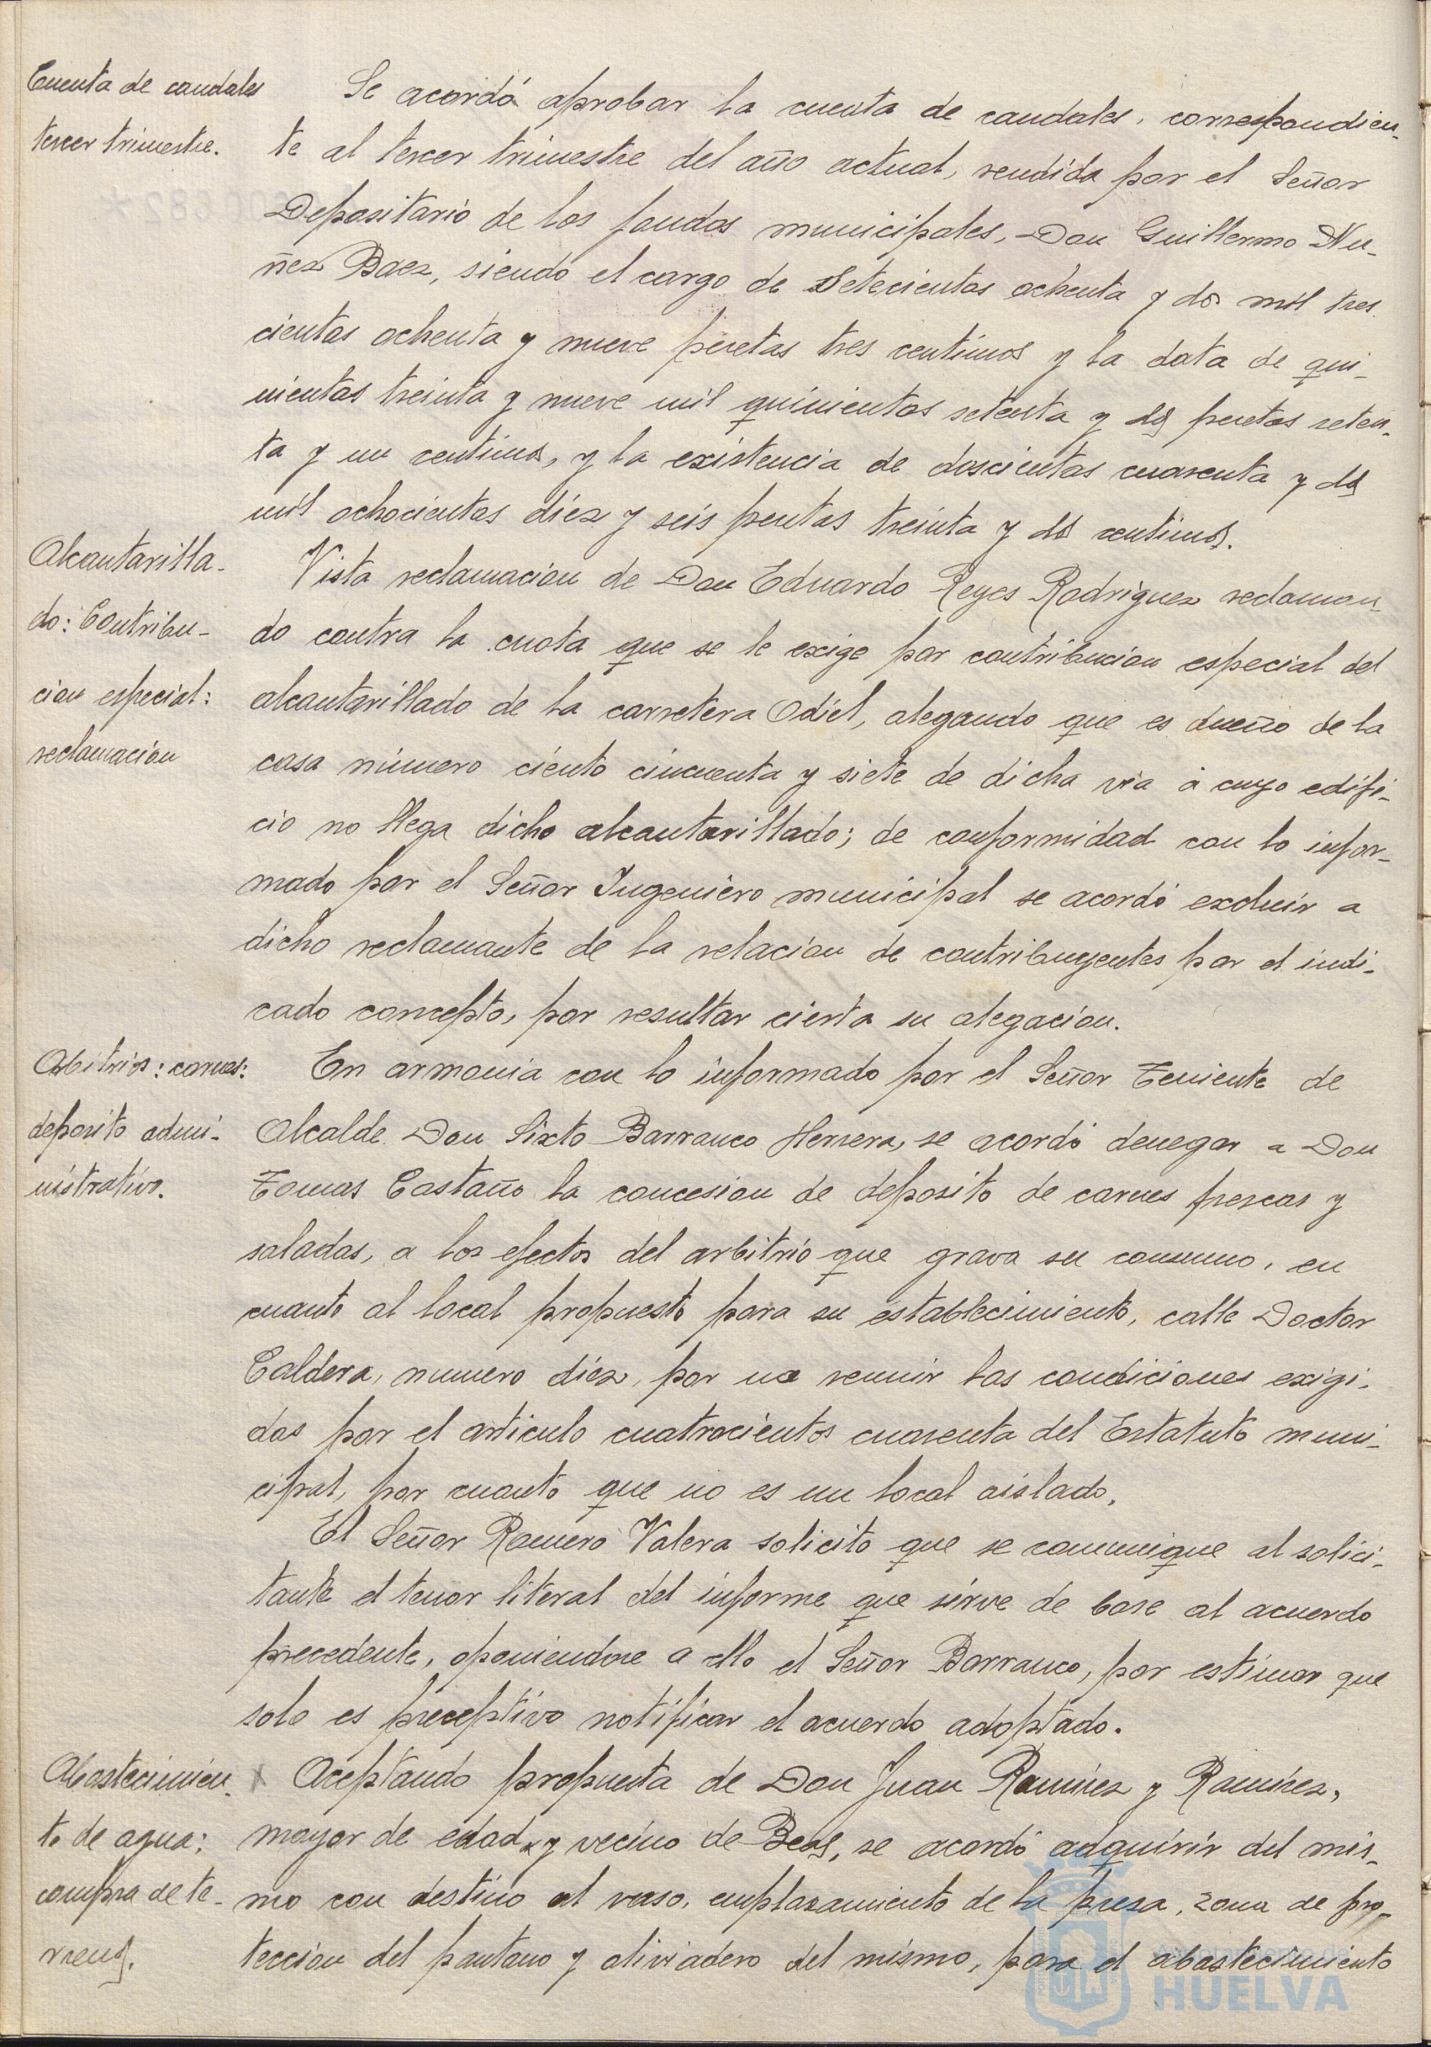 Cuenta de caudales
tercer trimestre.
Se acordó aprobar la cuenta de caudales, correspondien-
te al tercer trimestre del año actual, rendida por el Señor
Depositario de los fondos municipales, Don Guillermo Nu-
ñez Baez, siendo el cargo de Setecientas ochenta y dos mil tres
cientas ochenta y nueve pesetas tres centimos y la data de qui-
nientas treinta y nueve mil quinientas setenta y dos pesetas seten-
ta y un centimos, y la existencia de doscientas cuarenta y dos
mil ochocientas diez y seis pesetas treinta y dos centimos.
Alcantarilla-
do: Contribu-
cion especial:
reclamación
Vista reclamacion de Don Eduardo Reyes Rodriguez reclaman-
do contra la cuota que se le exige por contribucion especial del
alcantarillado de la carretera Odiel, alegando que es dueño de la
casa número ciento cincuenta y siete de dicha via á cuyo edifi-
cio no llega dicho alcantarillado; de conformidad con lo infor-
mado por el Señor Ingeniero municipal se acordó excluir a
dicho reclamante de la relacion de contribuyentes por el indi-
cado concepto, por resultar cierta su alegacion.
Arbitrios: carnes:
deposito admi-
nistrativo.
En armonia con lo informado por el Señor Teniente de
Alcalde Don Sixto Barranco Herrera, se acordó denegar a Don
Tomas Castaño la concesion de deposito de carnes frescas y
saladas, a los efectos del arbitrio que grava su consumo, en
cuanto al local propuesto para su establecimiento, calle Doctor
Caldera, numero diez, por no reunir las condiciones exigi-
das por el articulo cuatrocientos cuarenta del Estatuto muni-
cipal, por cuanto que no es un local aislado.
El Señor Romero Valera solicito que se comunique al solici-
tante el tenor literal del informe que sirve de base al acuerdo
precedente, oponiendose a ello el Señor Barranco, por estimar que
solo es preceptivo notificar el acuerdo adoptado.
Abastecimien-
to de agua:
compra de te-
rrenos.
Aceptando propuesta de Don Juan Ramirez y Ramirez,
mayor de edad y vecino de Beas, se acordó adquirir del mis-
mo con destino al vaso, emplazamiento de la presa, zona de pro-
teccion del pantano y aliviadero del mismo, para el abastecimiento
HUELVA